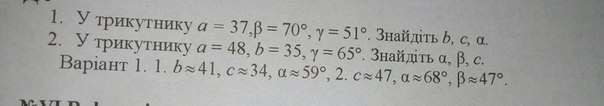 1. У трикутнику a = 37,β = 70°, γ = 51°. Знайдіть b, c, α.
2. У трикутнику a = 48, b = 35, γ = 65°. Знайдіть α, β, c.
Варіант 1. 1. b≈41, c≈34, α≈59°, 2. c≈47, α≈68°, β≈47°.